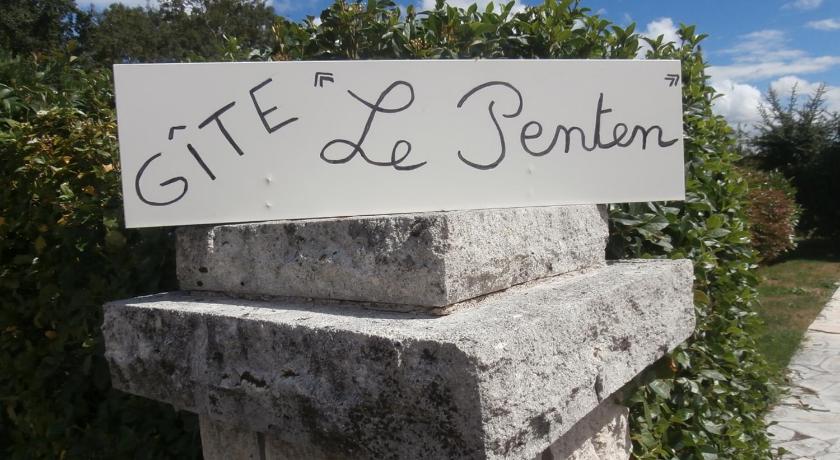 GÎTE « Le Penten »